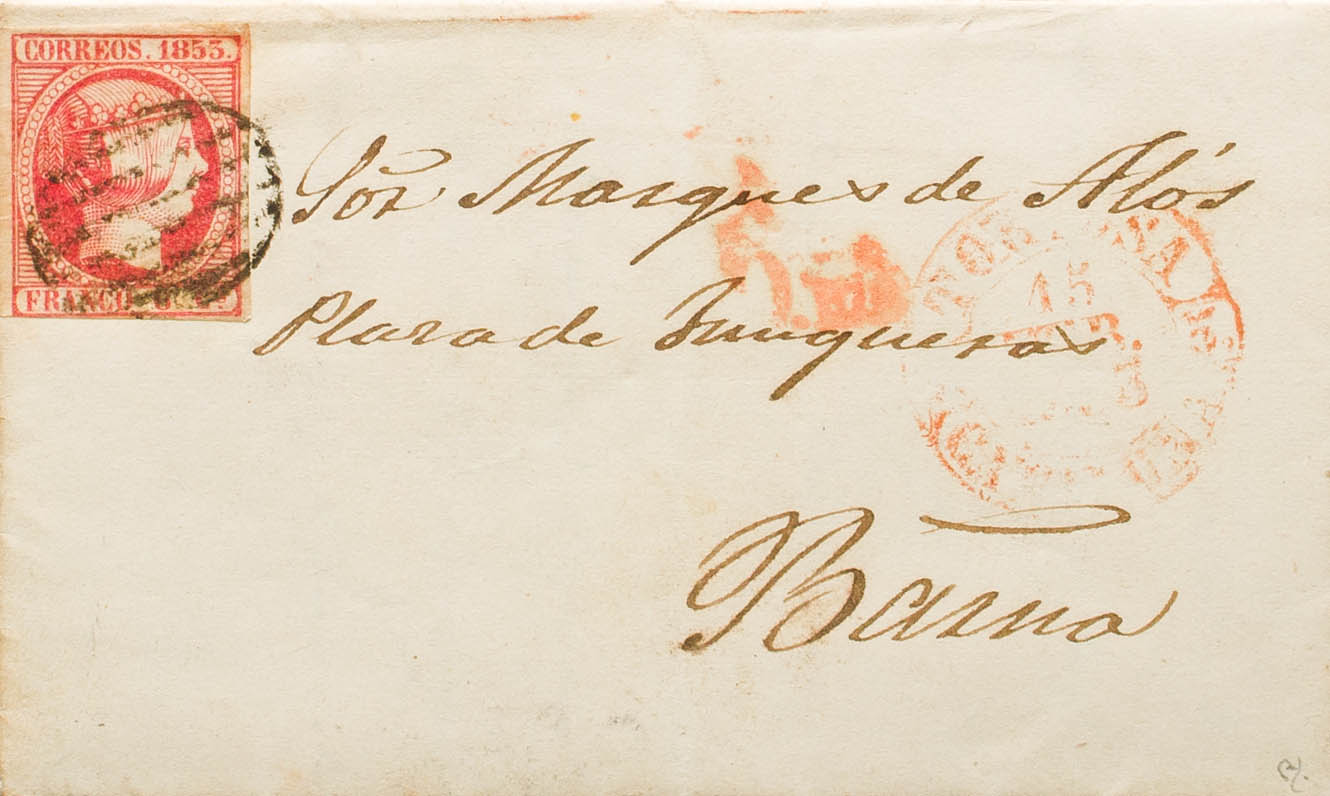 CORREOS. 1853.
FRANCO
Sor Marques de Alós
Plaza de Junqueras
Barna
15